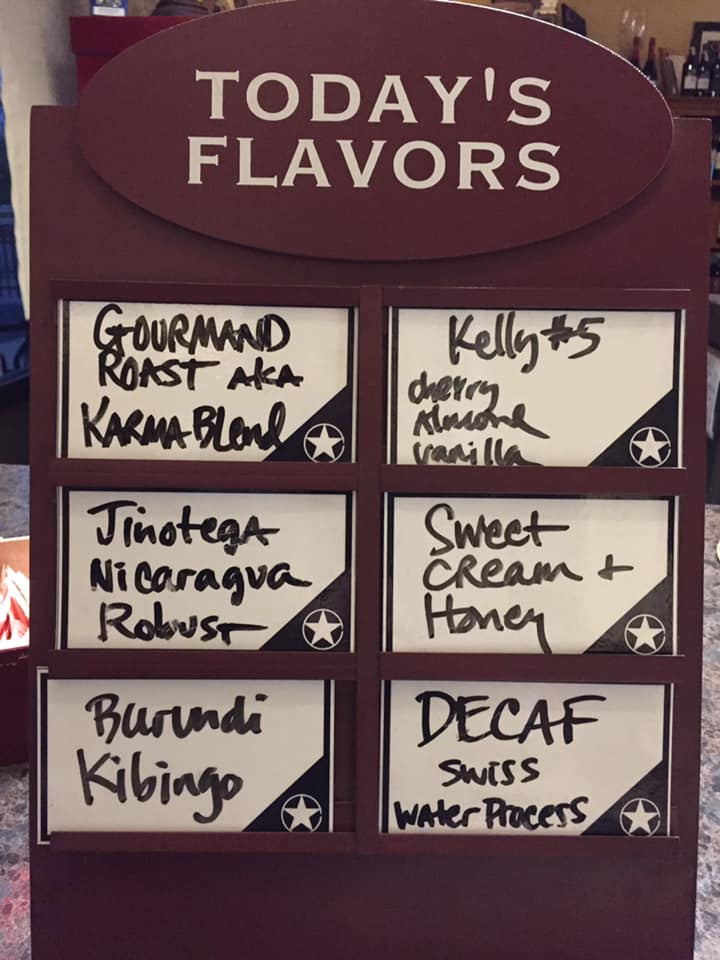 TODAY'S
FLAVORS
GOURMAND
ROAST AKA
KARMA BLEND
Kelly #5
cherry
Almond
vanilla
Jinotega
Nicaragua
Robust
Sweet
CReam +
Honey
Burundi
Kibingo
DECAF
SWISS
WATer Process